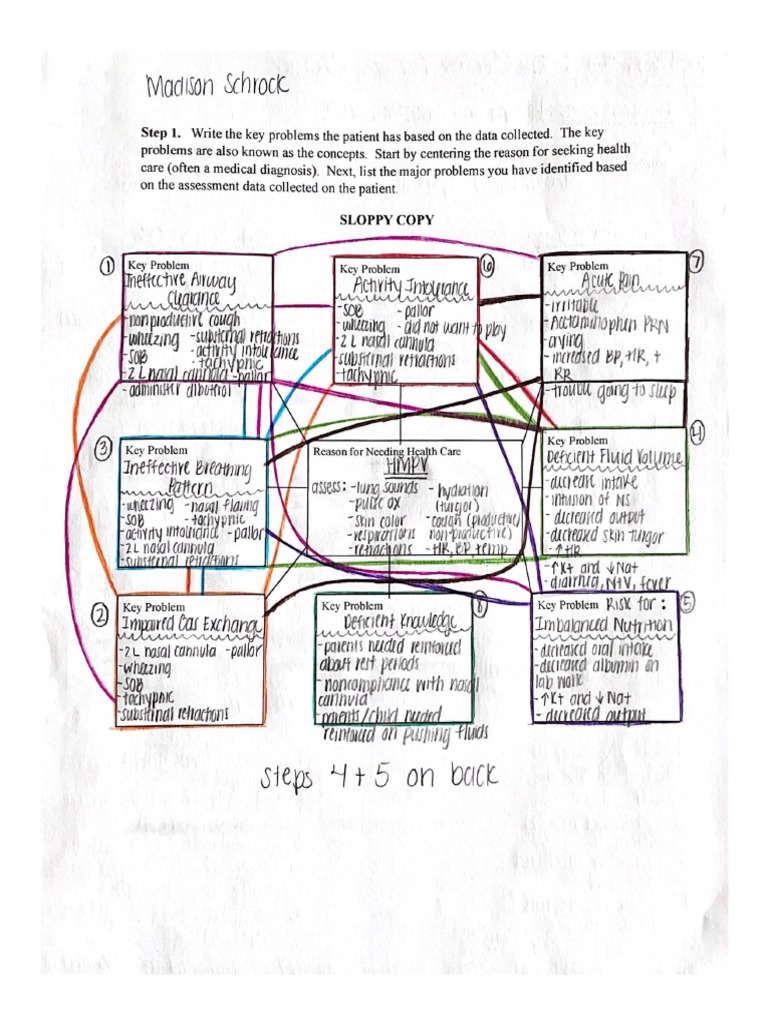 Madison Schrock
Step 1. Write the key problems the patient has based on the data collected. The key
problems are also known as the concepts. Start by centering the reason for seeking health
care (often a medical diagnosis). Next, list the major problems you have identified based
on the assessment data collected on the patient.
SLOPPY COPY
1
Key Problem
Ineffective Airway
Clearance
-nonproductive cough
-wheezing -substernal retractions
-SOB -activity intolerance
-tachypnic
-2 L nasal cannula -pallor
-administer albuterol
6
Key Problem
Activity Intolerance
-SOB -pallor
-wheezing -did not want to play
-2 L nasal cannula
-substernal retractions
-tachypnic
7
Key Problem
Acute Pain
-irritable
-Acetaminophen PRN
-crying
-increased BP, ↑HR, +
RR
-trouble going to sleep
3
Key Problem
Ineffective Breathing
Pattern
-wheezing -nasal flaring
-SOB -tachypnic
-activity intolerance -pallor
-2 L nasal cannula
-substernal retractions
Reason for Needing Health Care
HMPV
assess: -lung sounds -hydration
-pulse ox (turgor)
-skin color -cough (productive/
-respirations nonproductive)
-retractions -HR, BP, temp
4
Key Problem
Deficient Fluid Volume
-decrease intake
-infusion of NS
-decreased output
-decreased skin turgor
-↑HR
-↑K+ and ↓Na+
-diarrhea, N+V, fever
2
Key Problem
Impaired Gas Exchange
-2 L nasal cannula -pallor
-wheezing
-SOB
-tachypnic
-substernal retractions
8
Key Problem
Deficient Knowledge
-parents needed reinforced
about rest periods
-noncompliance with nasal
cannula
-parents/child needed
reinforced on pushing fluids
5
Key Problem Risk for:
Imbalanced Nutrition
-decreased oral intake
-decreased albumin on
lab work
-↑K+ and ↓Na+
-decreased output
steps 4+5 on back